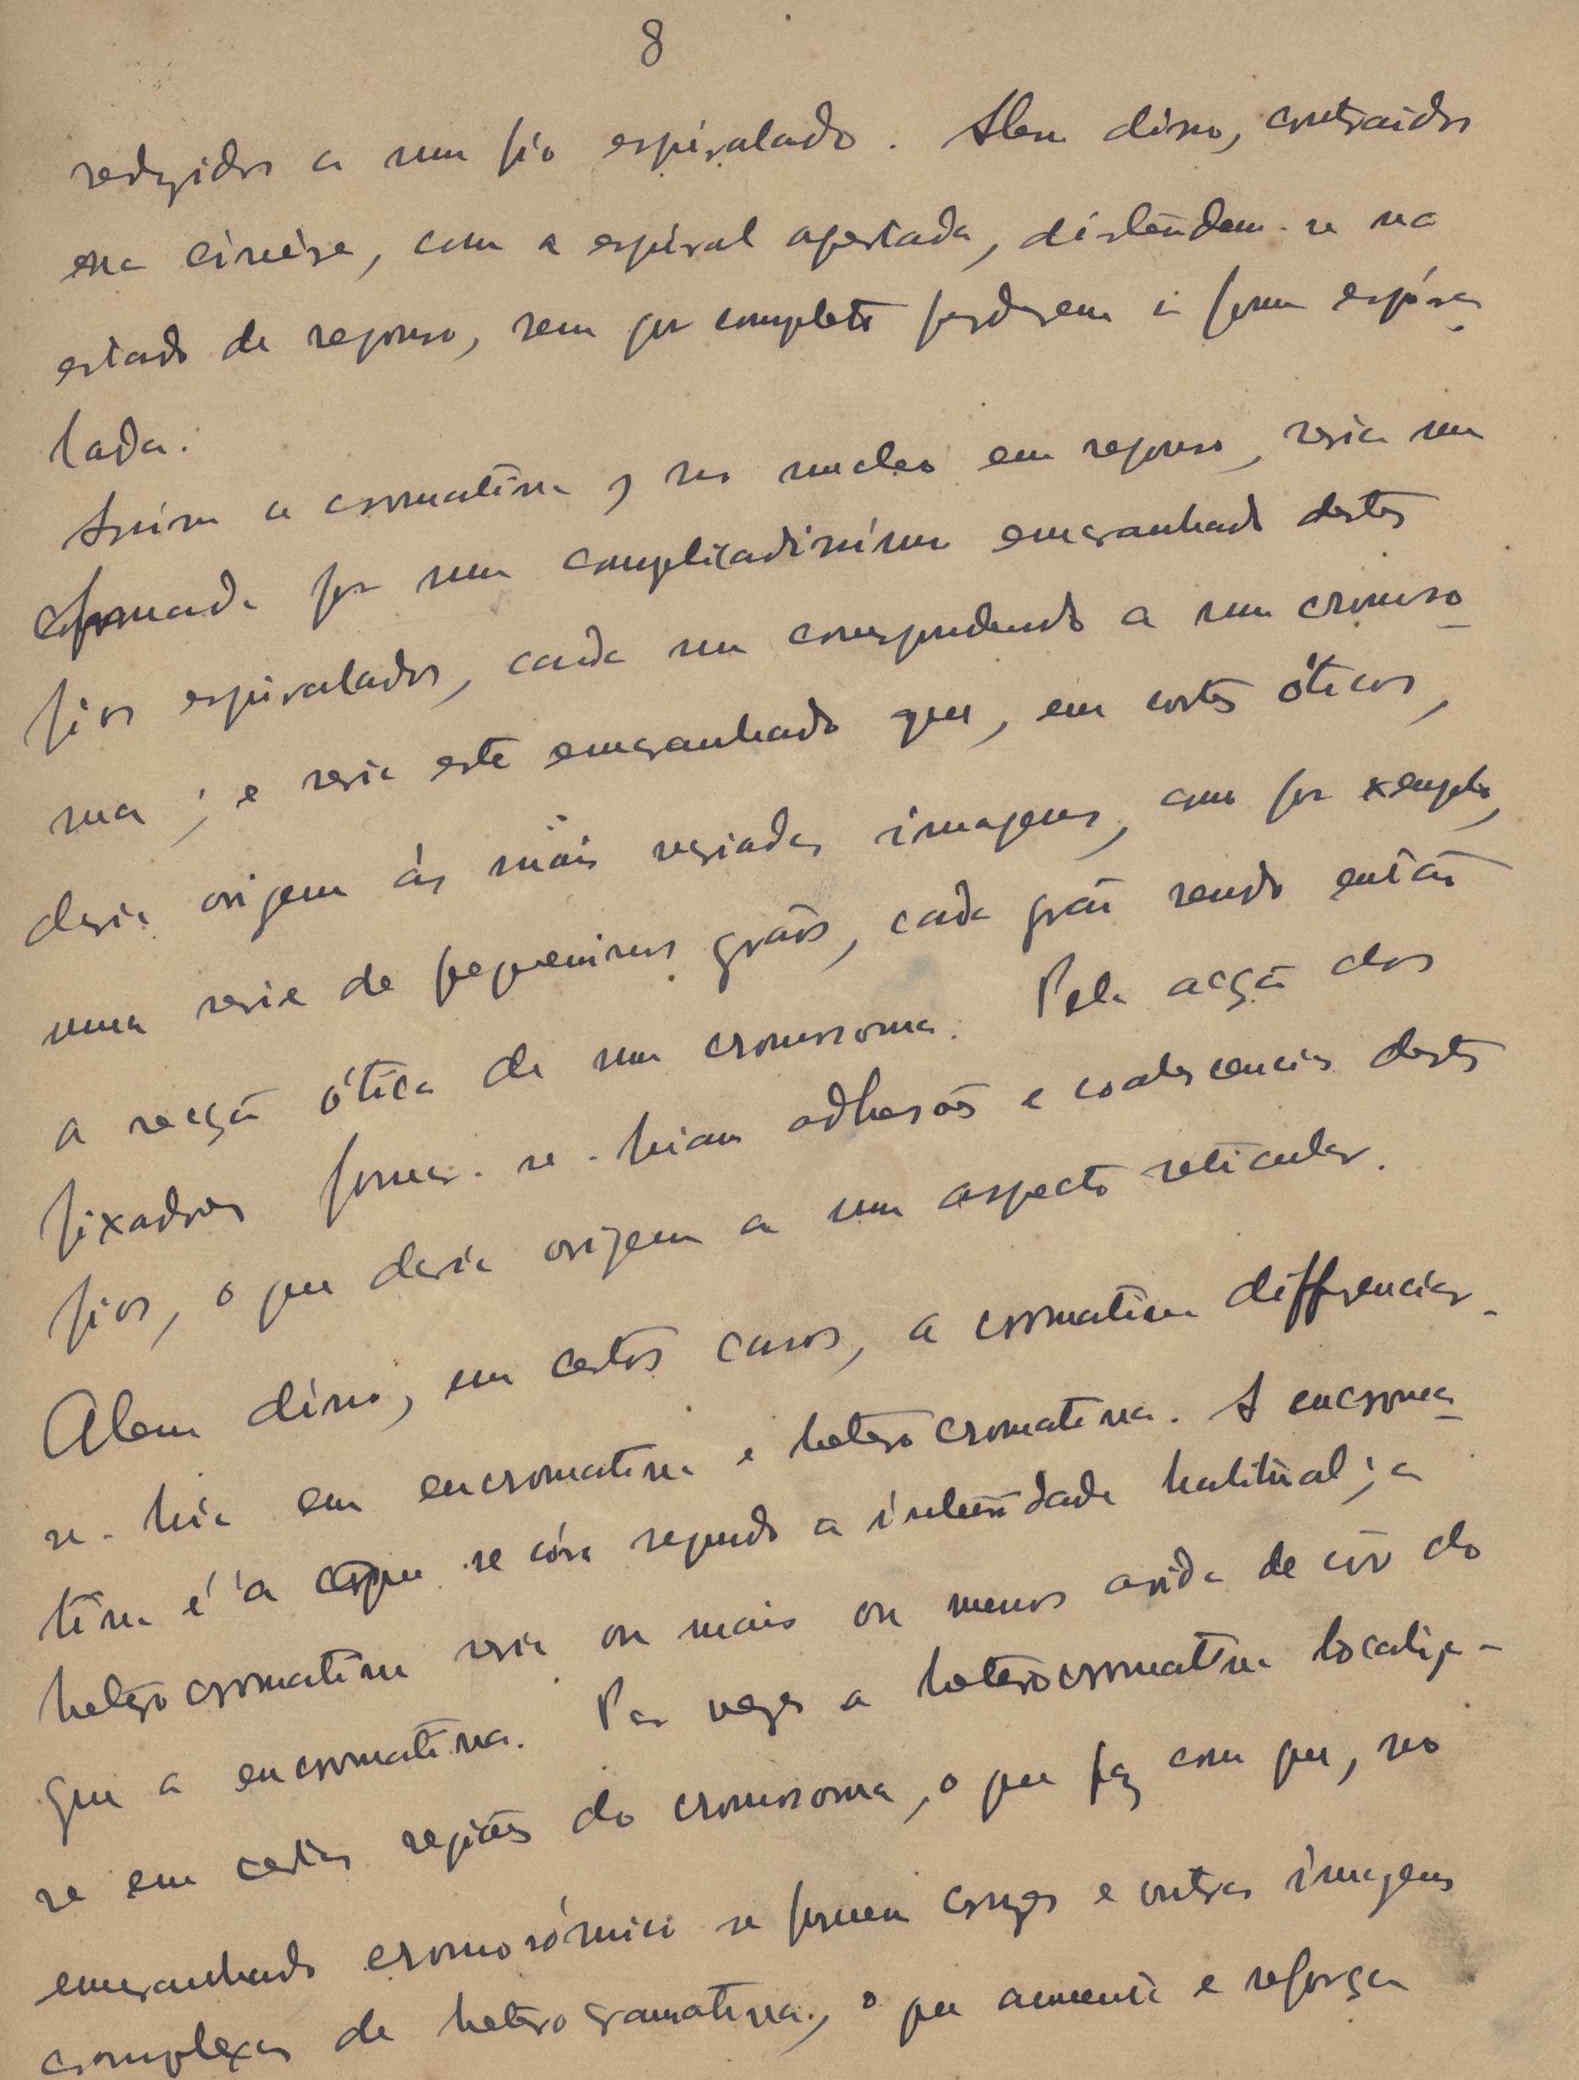 8
reduzidos a um fio espiralado. Alem disso, contraidos
na cinése, com a espiral apertada, distendem-se na
estado de repouso, sem por completo perderem a forma espira
lada.
Assim a cromatina, no nucleo em repouso, seria um
formada por um complicadissimo emaranhado destes
fios espiralados, cada um correspondendo a um cromoso
ma; e seria este emaranhado que, em cortes óticos,
daria origem ás mais variadas imagens, como por exemplo,
uma serie de pequeninos grãos, cada grão sendo então
a secção ótica de um cromosoma. Pela acção dos
fixadores formar-se-hiam adhesões e coalescencias destes
fios, o que daria origem a um aspecto reticular.
Alem disso, em certos casos, a cromatina differenciar-
se-hia em eucromatina e heterocromatina. A eucroma
tina é a que se córa segundo a intensidade habitual; a
heterocromatina seria ou mais ou menos avida de côr do
que a eucromatina. Por vezes a heterocromatina localiza-
se em certas regiões do cromosoma, o que faz com que, no
emaranhado cromosómico se formem cruzes e outras imagens
complexas de heterocromatina, o que aumenta e reforça